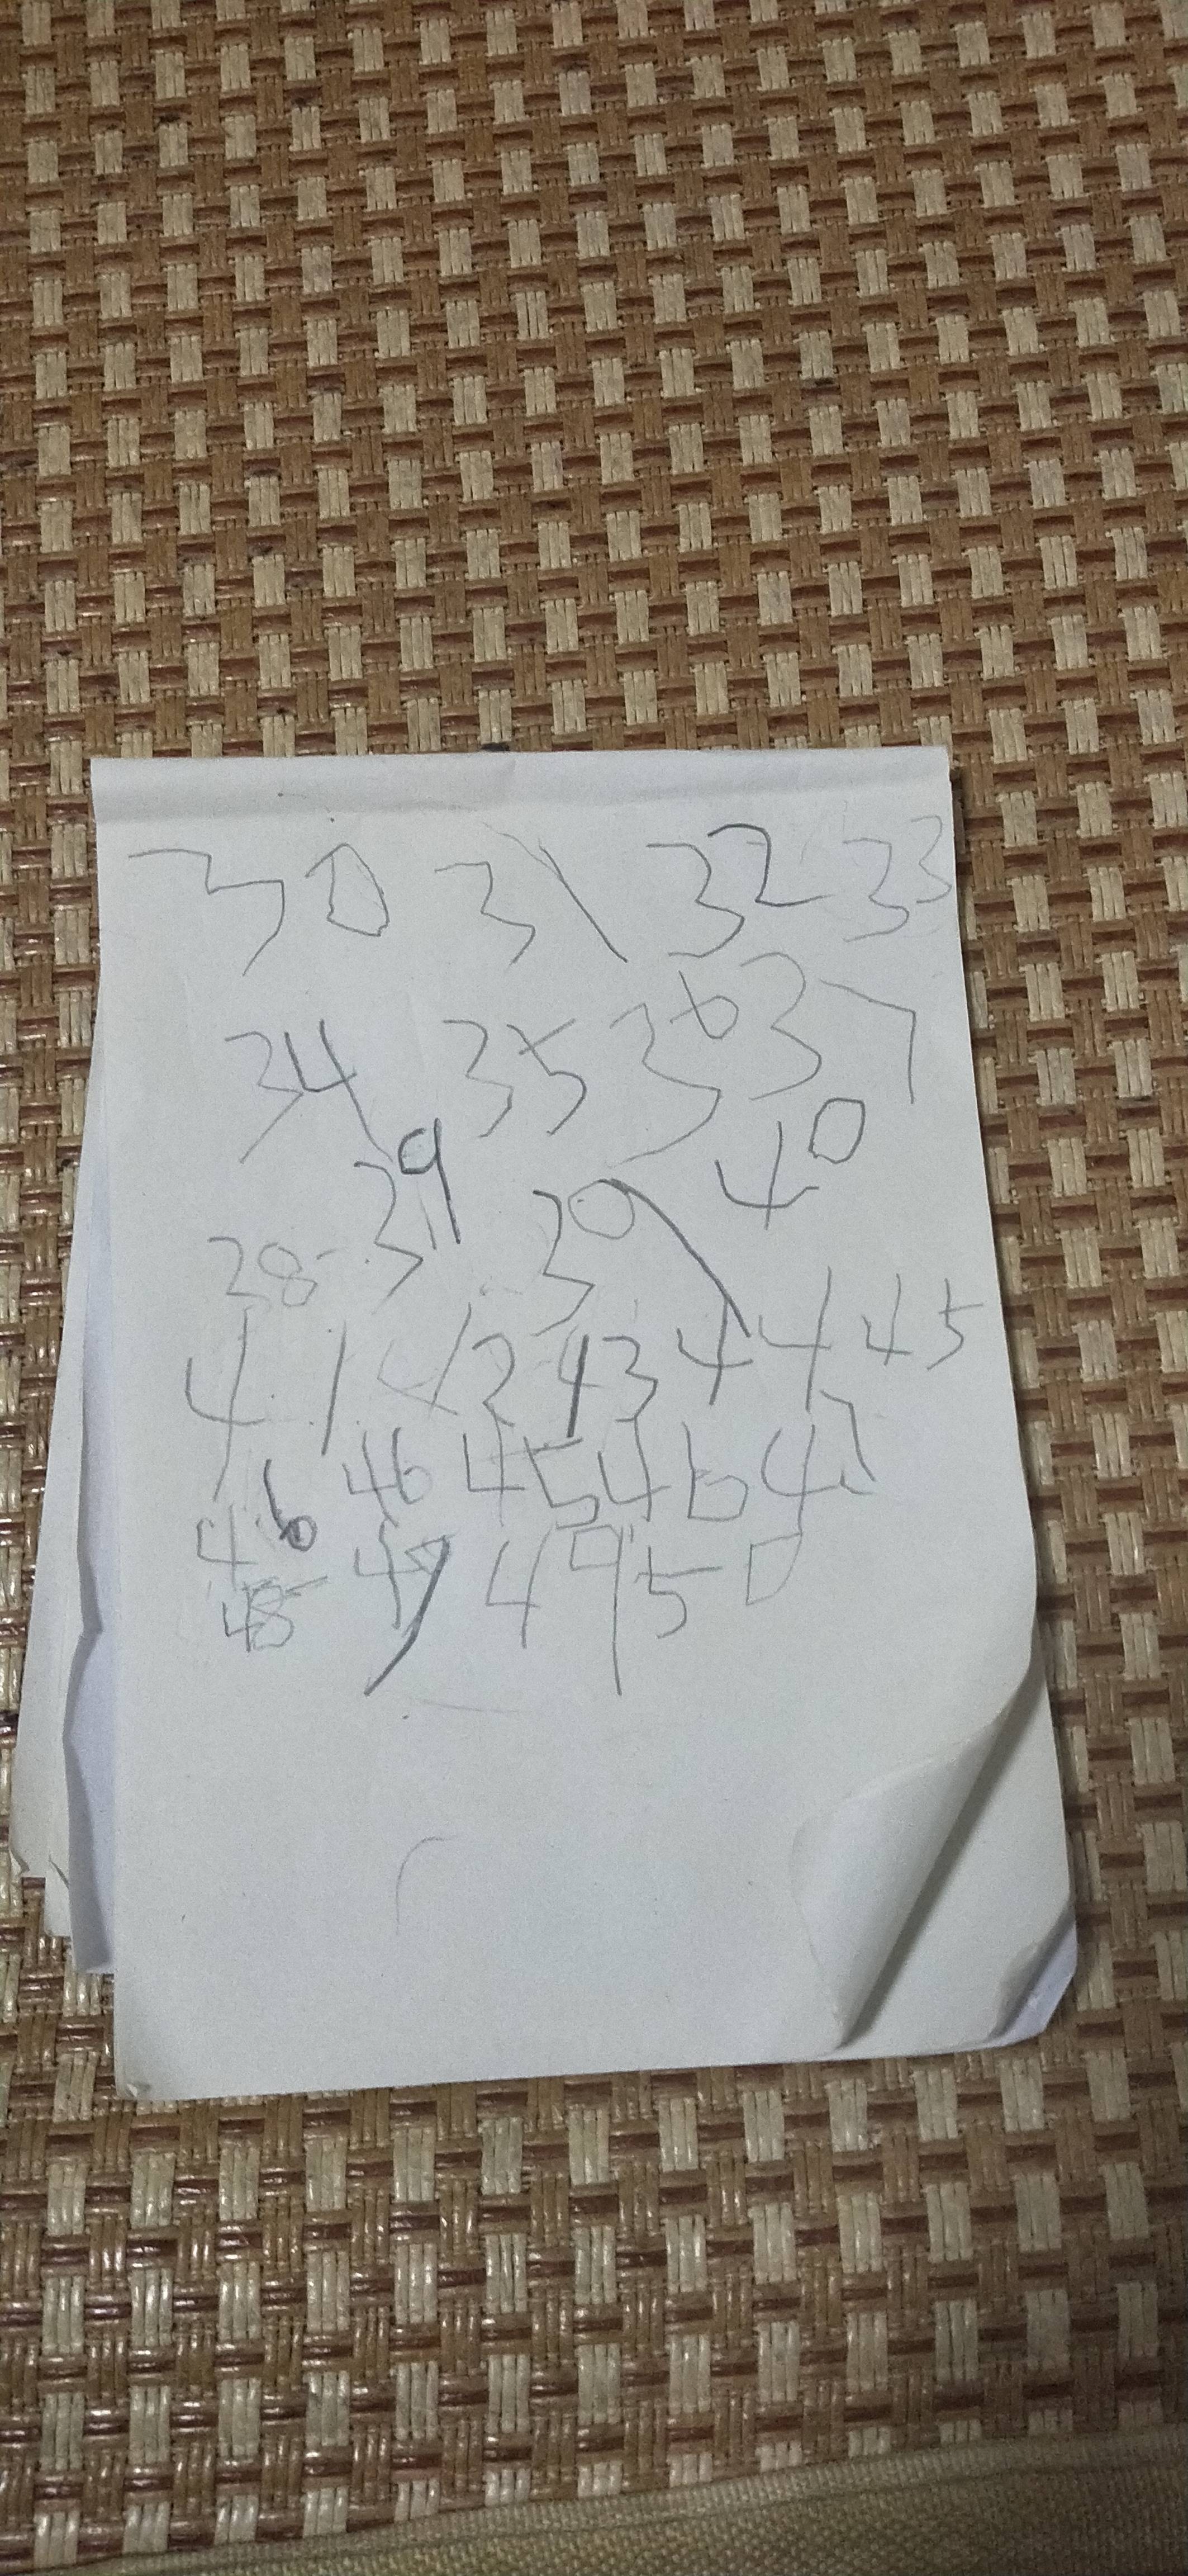 30 31 32 33
34 35 36 37
38 39 39 40
41 42 43 44 45
46 46 45 46 47
48 49 49 50